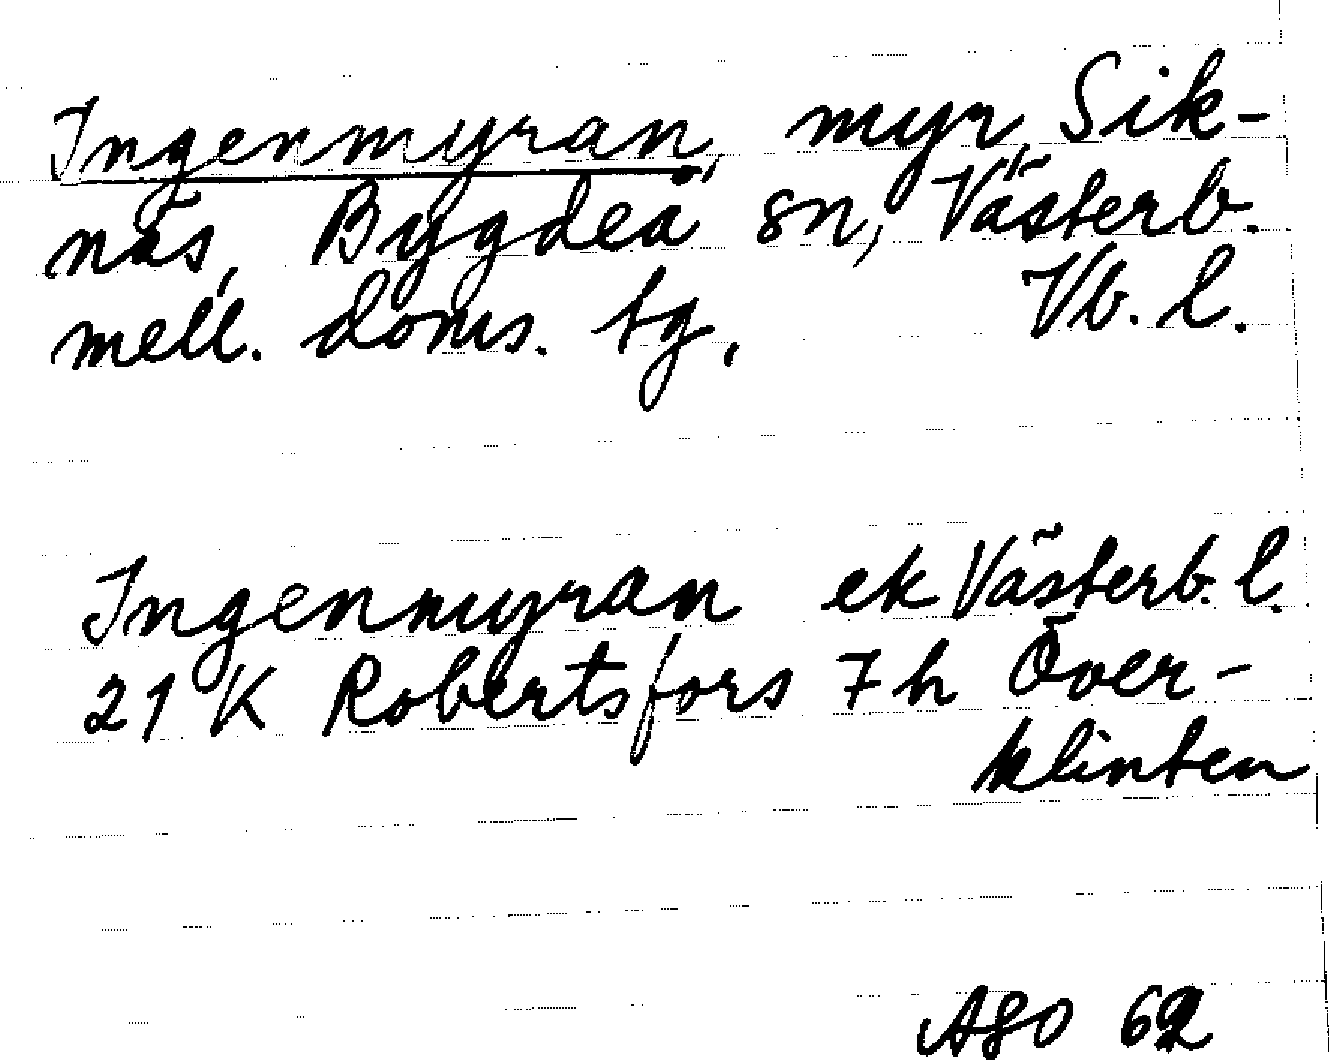 Ingenmyran, myr, Sik-
näs, Bygdeå sn, Västerb.
mell. doms. tg, Vb. l.
Ingenmyran ek Västerb. l.
21 K Robertsfors 7 h Över-
klinten
ASO 62